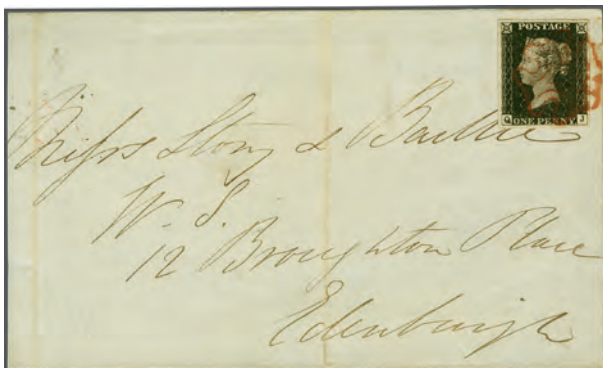 POSTAGE
ONE PENNY
Q J
Messrs Story & Baillie
W. S.
12 Broughton Place
Edenburgh